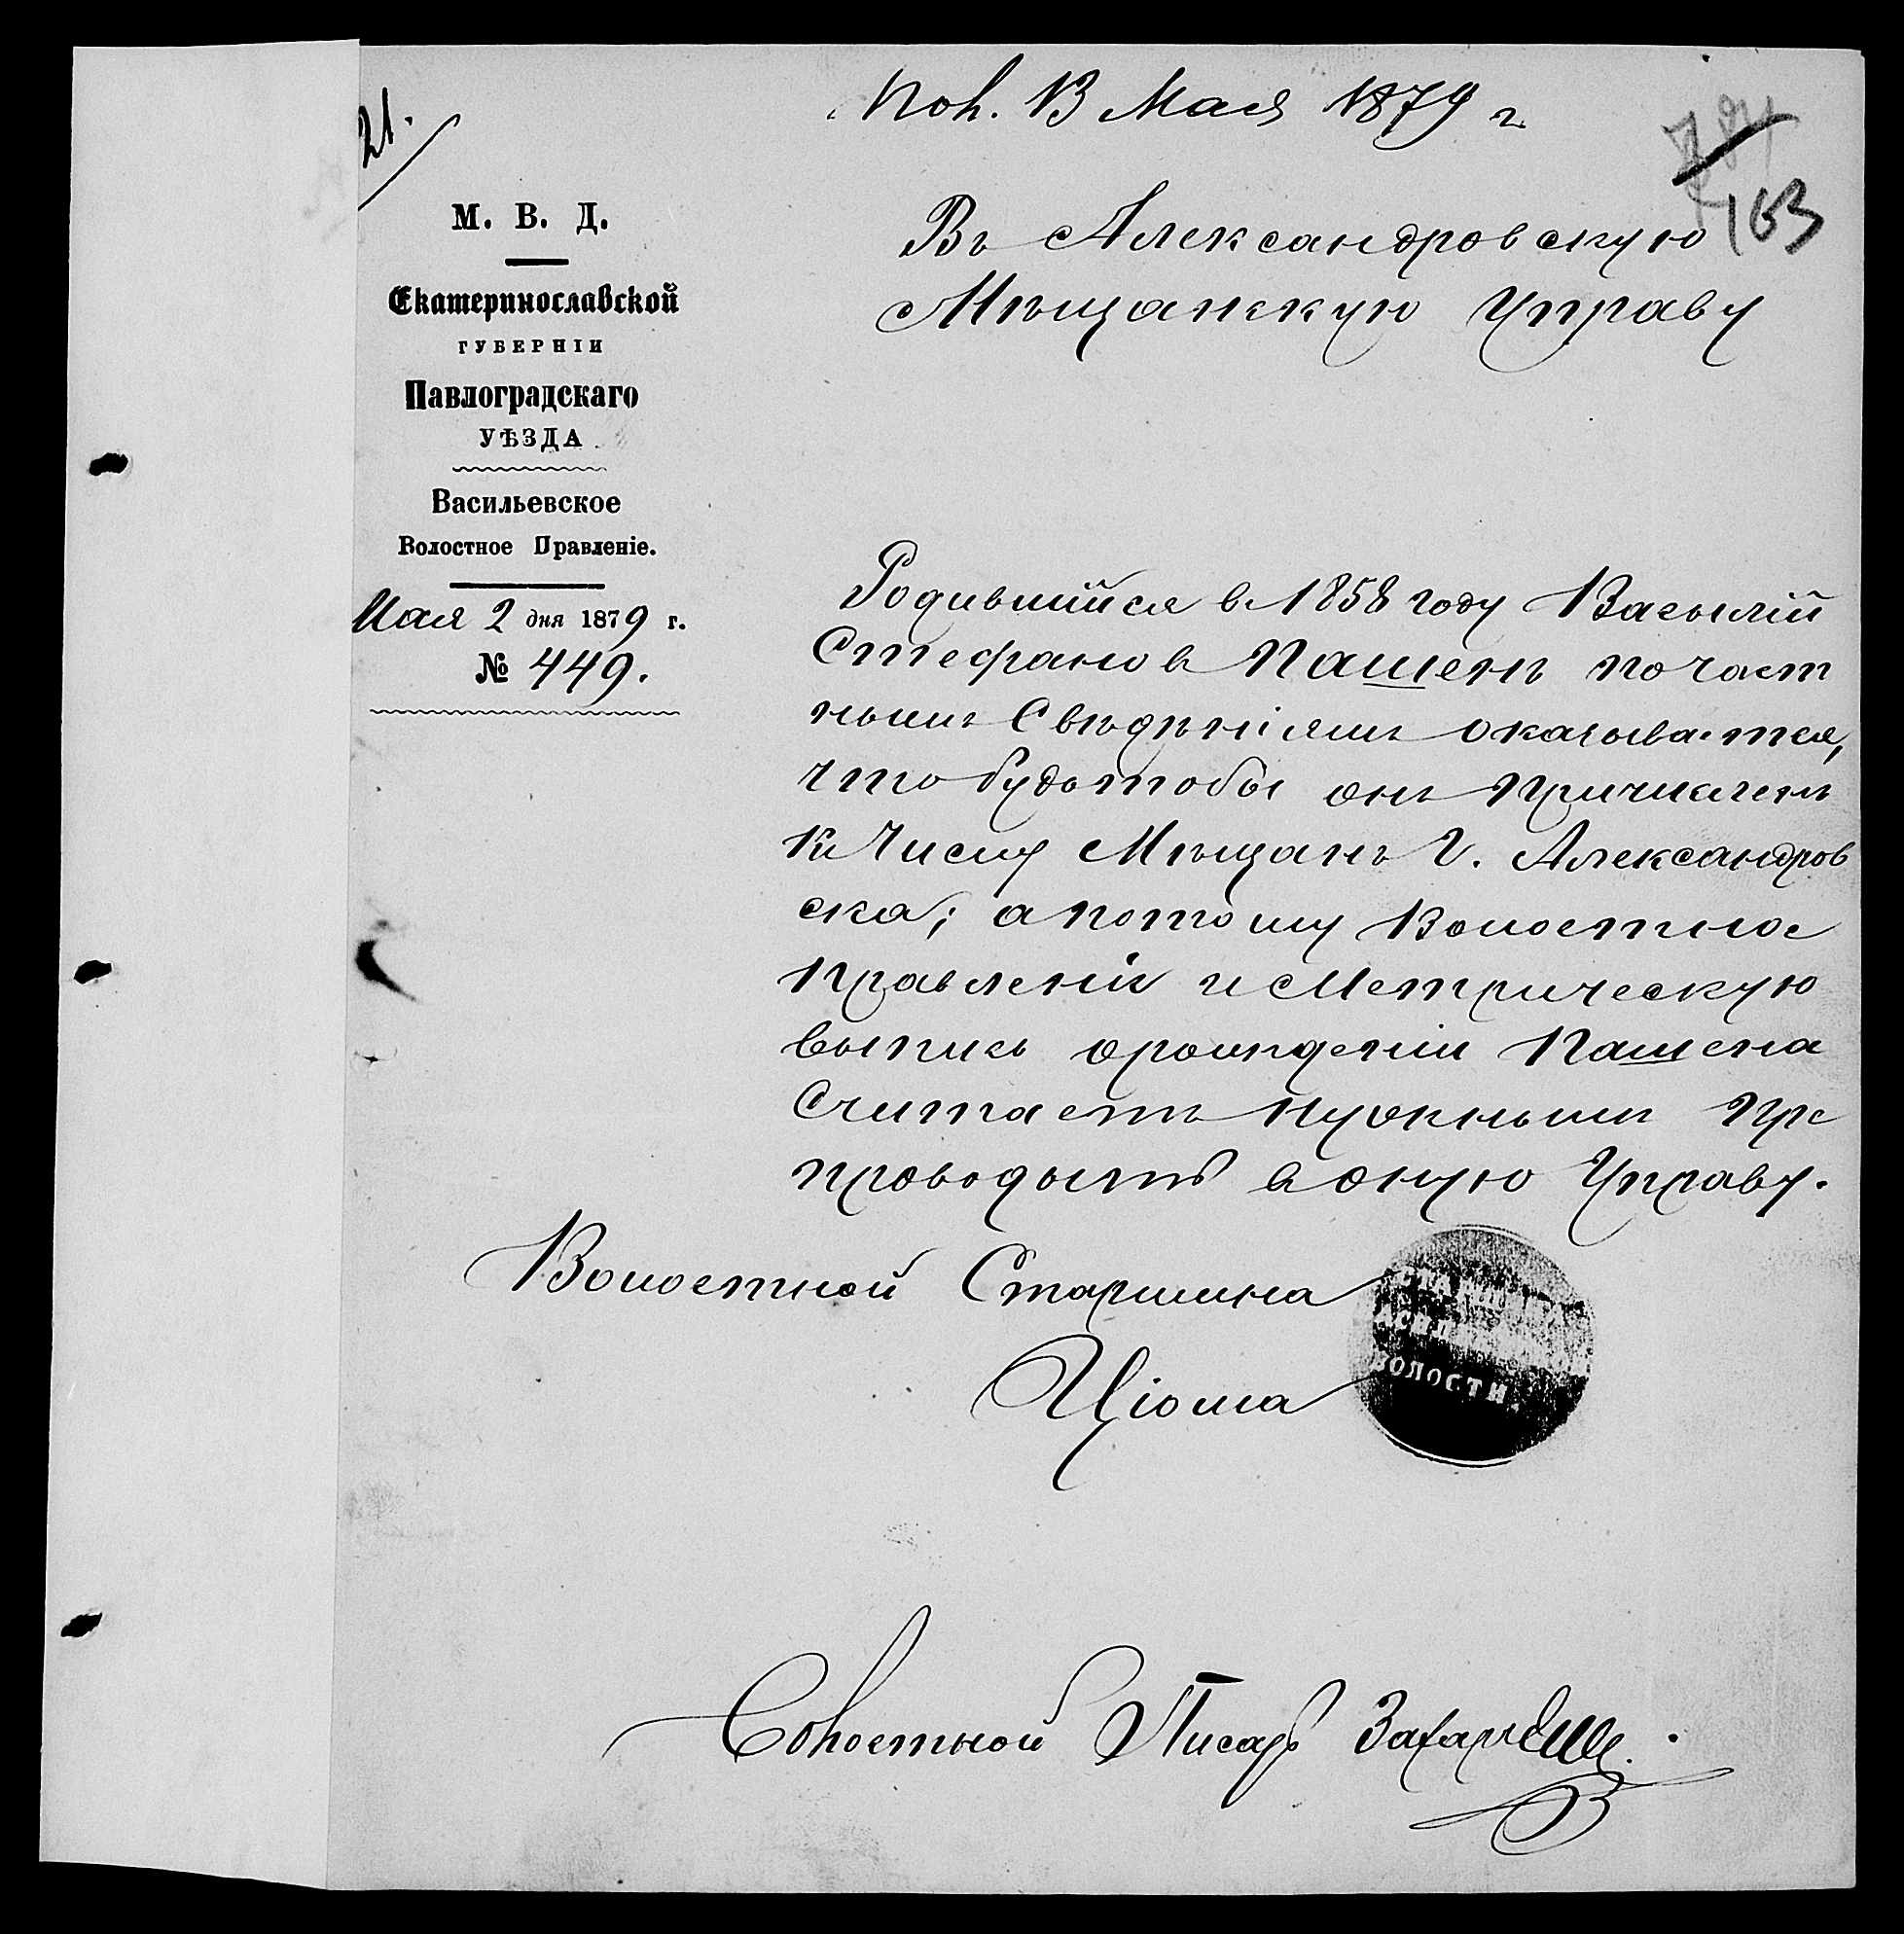 21.
Пол. 13 Мая 1879 г
163
М. В. Д.
Екатеринославской
ГУБЕРНІИ
Павлоградскаго
УѢЗДА
Васильевское
Волостное Правленіе.
Мая 2 дня 1879 г.
№ 449.
Въ Александровскую
Мѣщанскую Управу
Родившійся в 1858 году Васылій
Стефанов Пашенъ по част
нымъ Свѣдѣніямъ оказывается,
что будьтобы онъ причисленъ
къ Числу Мѣщанъ Г. Александров
ска; а потому Волостное
Правленіе и Метрическую
выпись орожденіи Пашена
Считаетъ Нужнымъ Пре
проводыть в оную Управу.
Волостной Старшина
Ціома
ВОЛОСТИ
Волостной Писарь